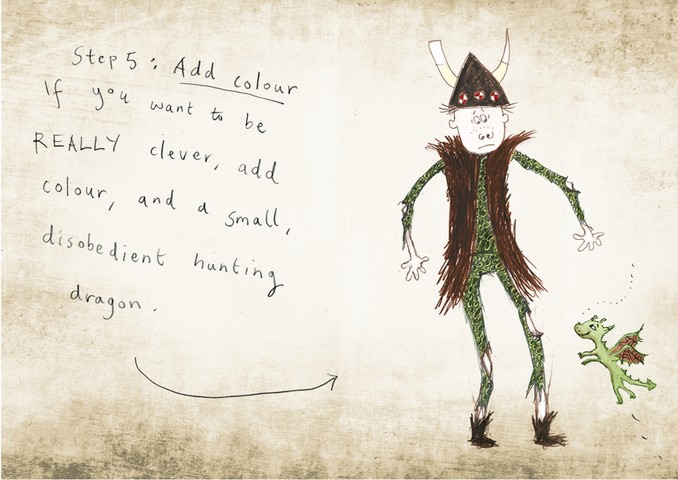 Step 5: Add colour
If you want to be
REALLY clever, add
colour, and a small,
disobedient hunting
dragon.